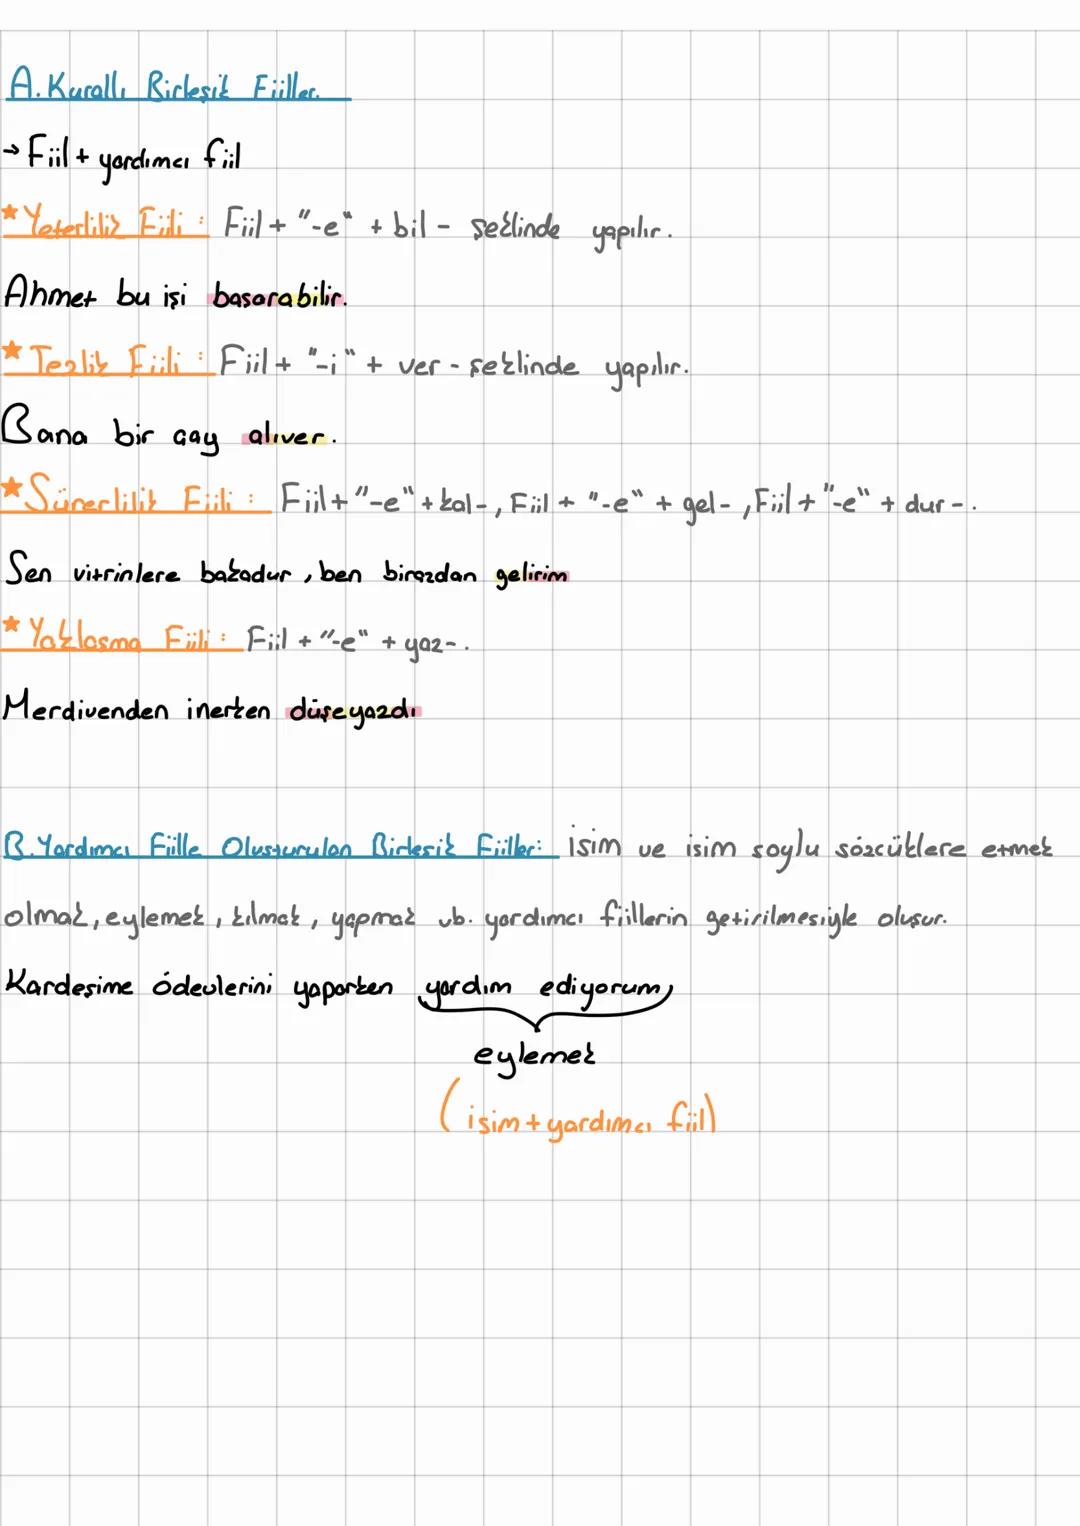 A. Kurallı Birleşik Fiiller
→ Fiil + yardımcı fiil
★ Yeterlilik Fiili : Fiil + "-e" + bil - şeklinde yapılır.
Ahmet bu işi başarabilir.
★ Tezlik Fiili : Fiil + "-i" + ver - şeklinde yapılır.
Bana bir çay alıver.
★ Sürerlilik Fiili : Fiil + "-e" + kal - , Fiil + "-e" + gel - , Fiil + "-e" + dur - .
Sen vitrinlere bakadur , ben birazdan gelirim
★ Yaklaşma Fiili : Fiil + "-e" + yaz - .
Merdivenden inerken düşeyazdı
B. Yardımcı Fiille Oluşturulan Birleşik Fiiller: isim ve isim soylu sözcüklere etmek
olmak, eylemek , kılmak , yapmak vb. yardımcı fiillerin getirilmesiyle oluşur.
Kardeşime ödevlerini yaparken yardım ediyorum
eylemek
(isim + yardımcı fiil)